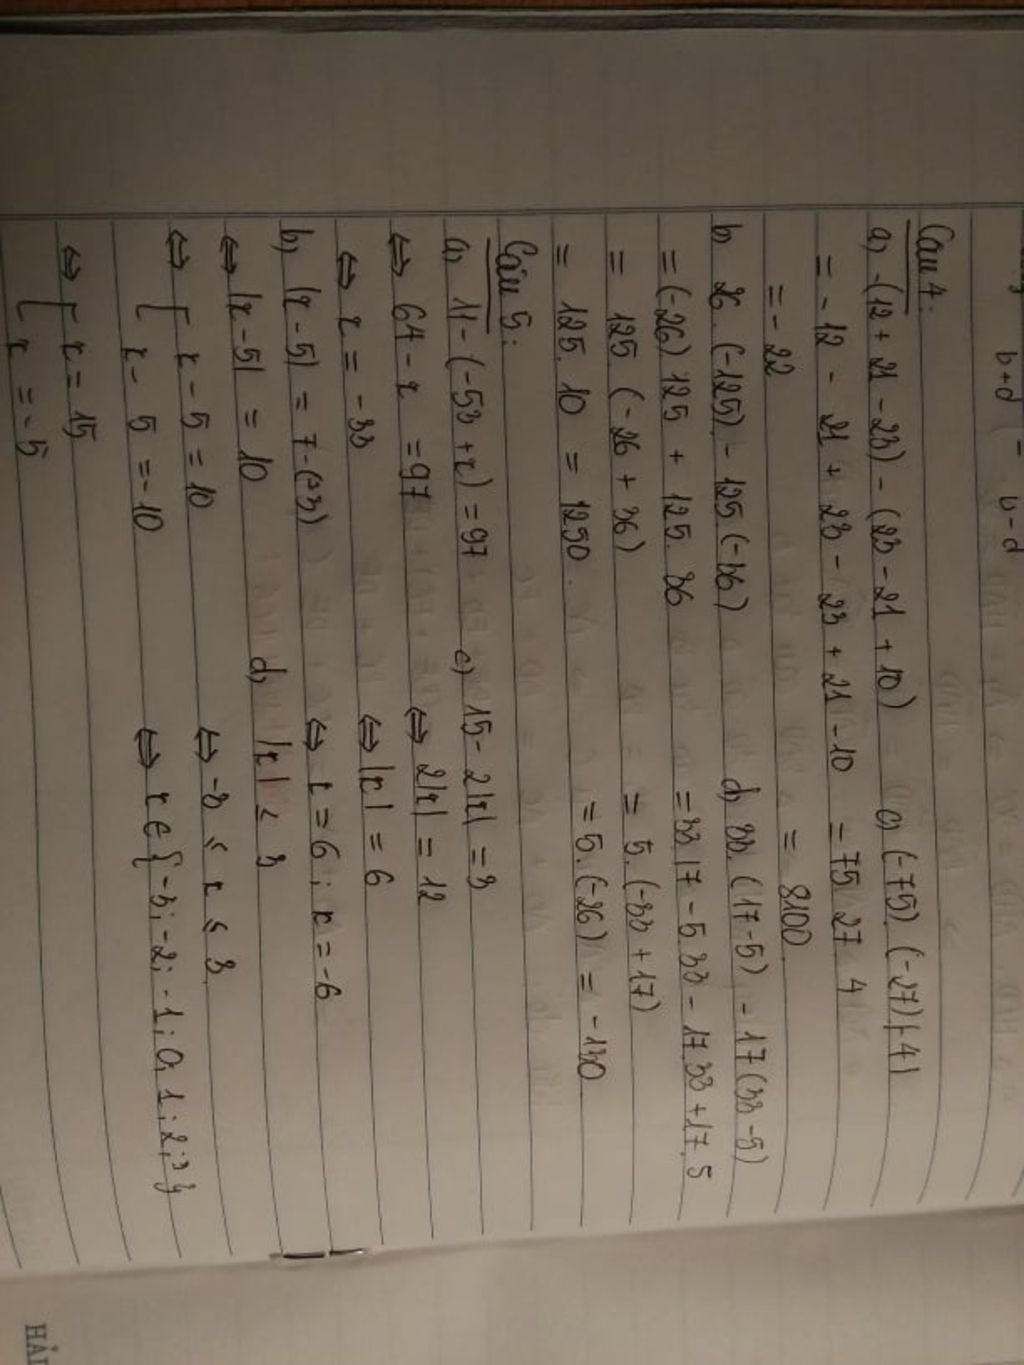 b+d
b-d
Câu 4:
a, -(12 + 21 - 23) - (23 - 21 + 10)
= -12 - 21 + 23 - 23 + 21 - 10
= - 22
c, (-75). (-27) |-4|
= 75. 27. 4
= 8100
b, 26. (-125) - 125 (-36)
= (-26) 125 + 125. 36
= 125. (-26 + 36)
= 125. 10 = 1250.
d, 33. (17-5) - 17(33-5)
= 33.17 - 5.33 - 17.33 + 17.5
= 5. (-33 + 17)
= 5. (-26) = -130
Câu 5:
a, 11 - (-53 + x) = 97
⇔ 64 - x = 97
⇔ x = -33
b, |x - 5| = 7 - (-3)
⇔ |x - 5| = 10
⇔ [ x - 5 = 10
x - 5 = -10
⇔ [ x = 15
x = -5
c, 15 - 2|x| = 3
⇔ 2|x| = 12
⇔ |x| = 6
⇔ x = 6 ; x = -6
d, |x| ≤ 3
⇔ -3 ≤ x ≤ 3
⇔ x ∈ { -3; -2; -1; 0; 1; 2; 3 }
HẢI